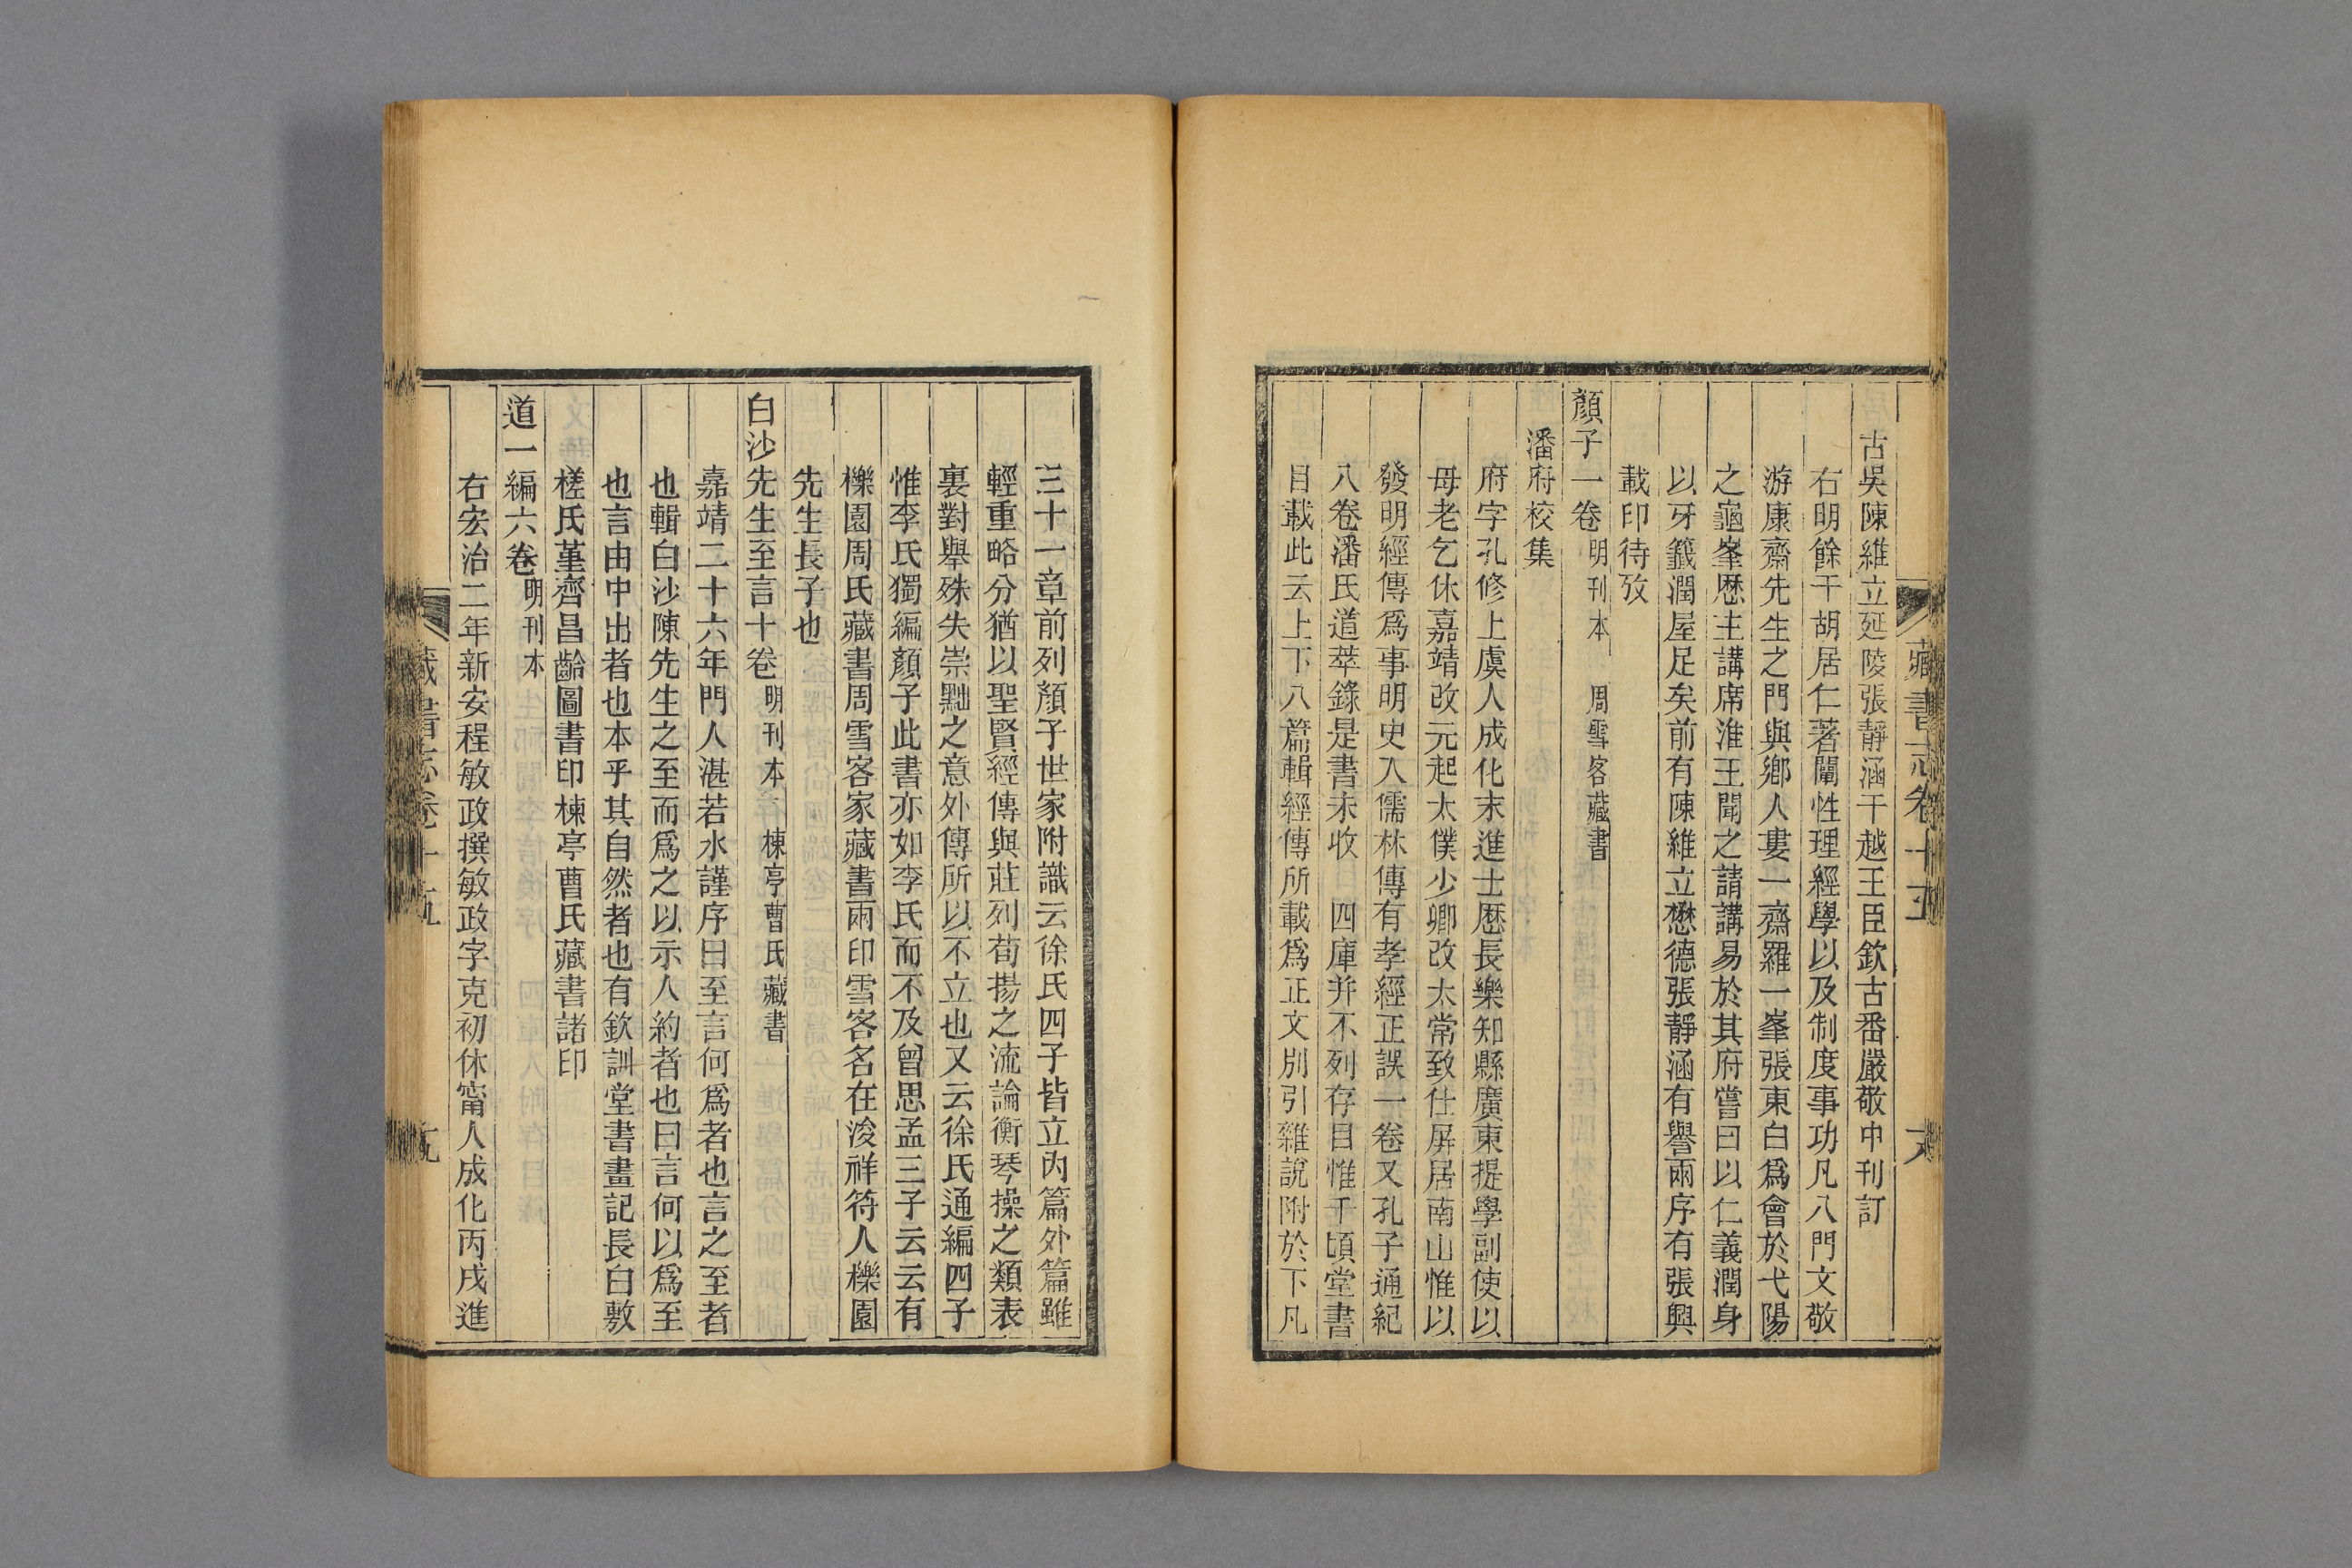 藏書志卷十五
古吳陳維立延陵張靜涵干越王臣欽古番嚴敬中刊訂
右明餘干胡居仁著闡性理經學以及制度事功凡八門文敬
游康齋先生之門與鄉人婁一齋羅一峯張東白爲會於弋陽
之龜峯歷主講席淮王聞之請講易於其府嘗曰以仁義潤身
以牙籤潤屋足矣前有陳維立懋德張靜涵有譽兩序有張興
載印待攷
顏子一卷 明刊本 周雪客藏書
潘府校集
府字孔修上虞人成化末進士歷長樂知縣廣東提學副使以
母老乞休嘉靖改元起太僕少卿改太常致仕屏居南山惟以
發明經傳爲事明史入儒林傳有孝經正誤一卷又孔子通紀
八卷潘氏道萃錄是書未收 四庫并不列存目惟千頃堂書
目載此云上下八篇輯經傳所載爲正文別引雜說附於下凡
三十一章前列顏子世家附識云徐氏四子皆立內篇外篇雖
輕重略分猶以聖賢經傳與莊列荀揚之流論衡琴操之類表
裏對舉殊失崇黜之意外傳所以不立也又云徐氏通編四子
惟李氏獨編顏子此書亦如李氏而不及曾思孟三子云云有
櫟園周氏藏書周雪客家藏書兩印雪客名在浚祥符人櫟園
先生長子也
白沙先生至言十卷 明刊本 楝亭曹氏藏書
嘉靖二十六年門人湛若水謹序曰至言何爲者也言之至者
也輯白沙陳先生之至而爲之以示人約者也曰言何以爲至
也言由中出者也本乎其自然者也有欽訓堂書畫記長白敷
槎氏堇齊昌齡圖書印楝亭曹氏藏書諸印
道一編六卷 明刊本
右宏治二年新安程敏政撰敏政字克初休甯人成化丙戌進
藏書志卷十五